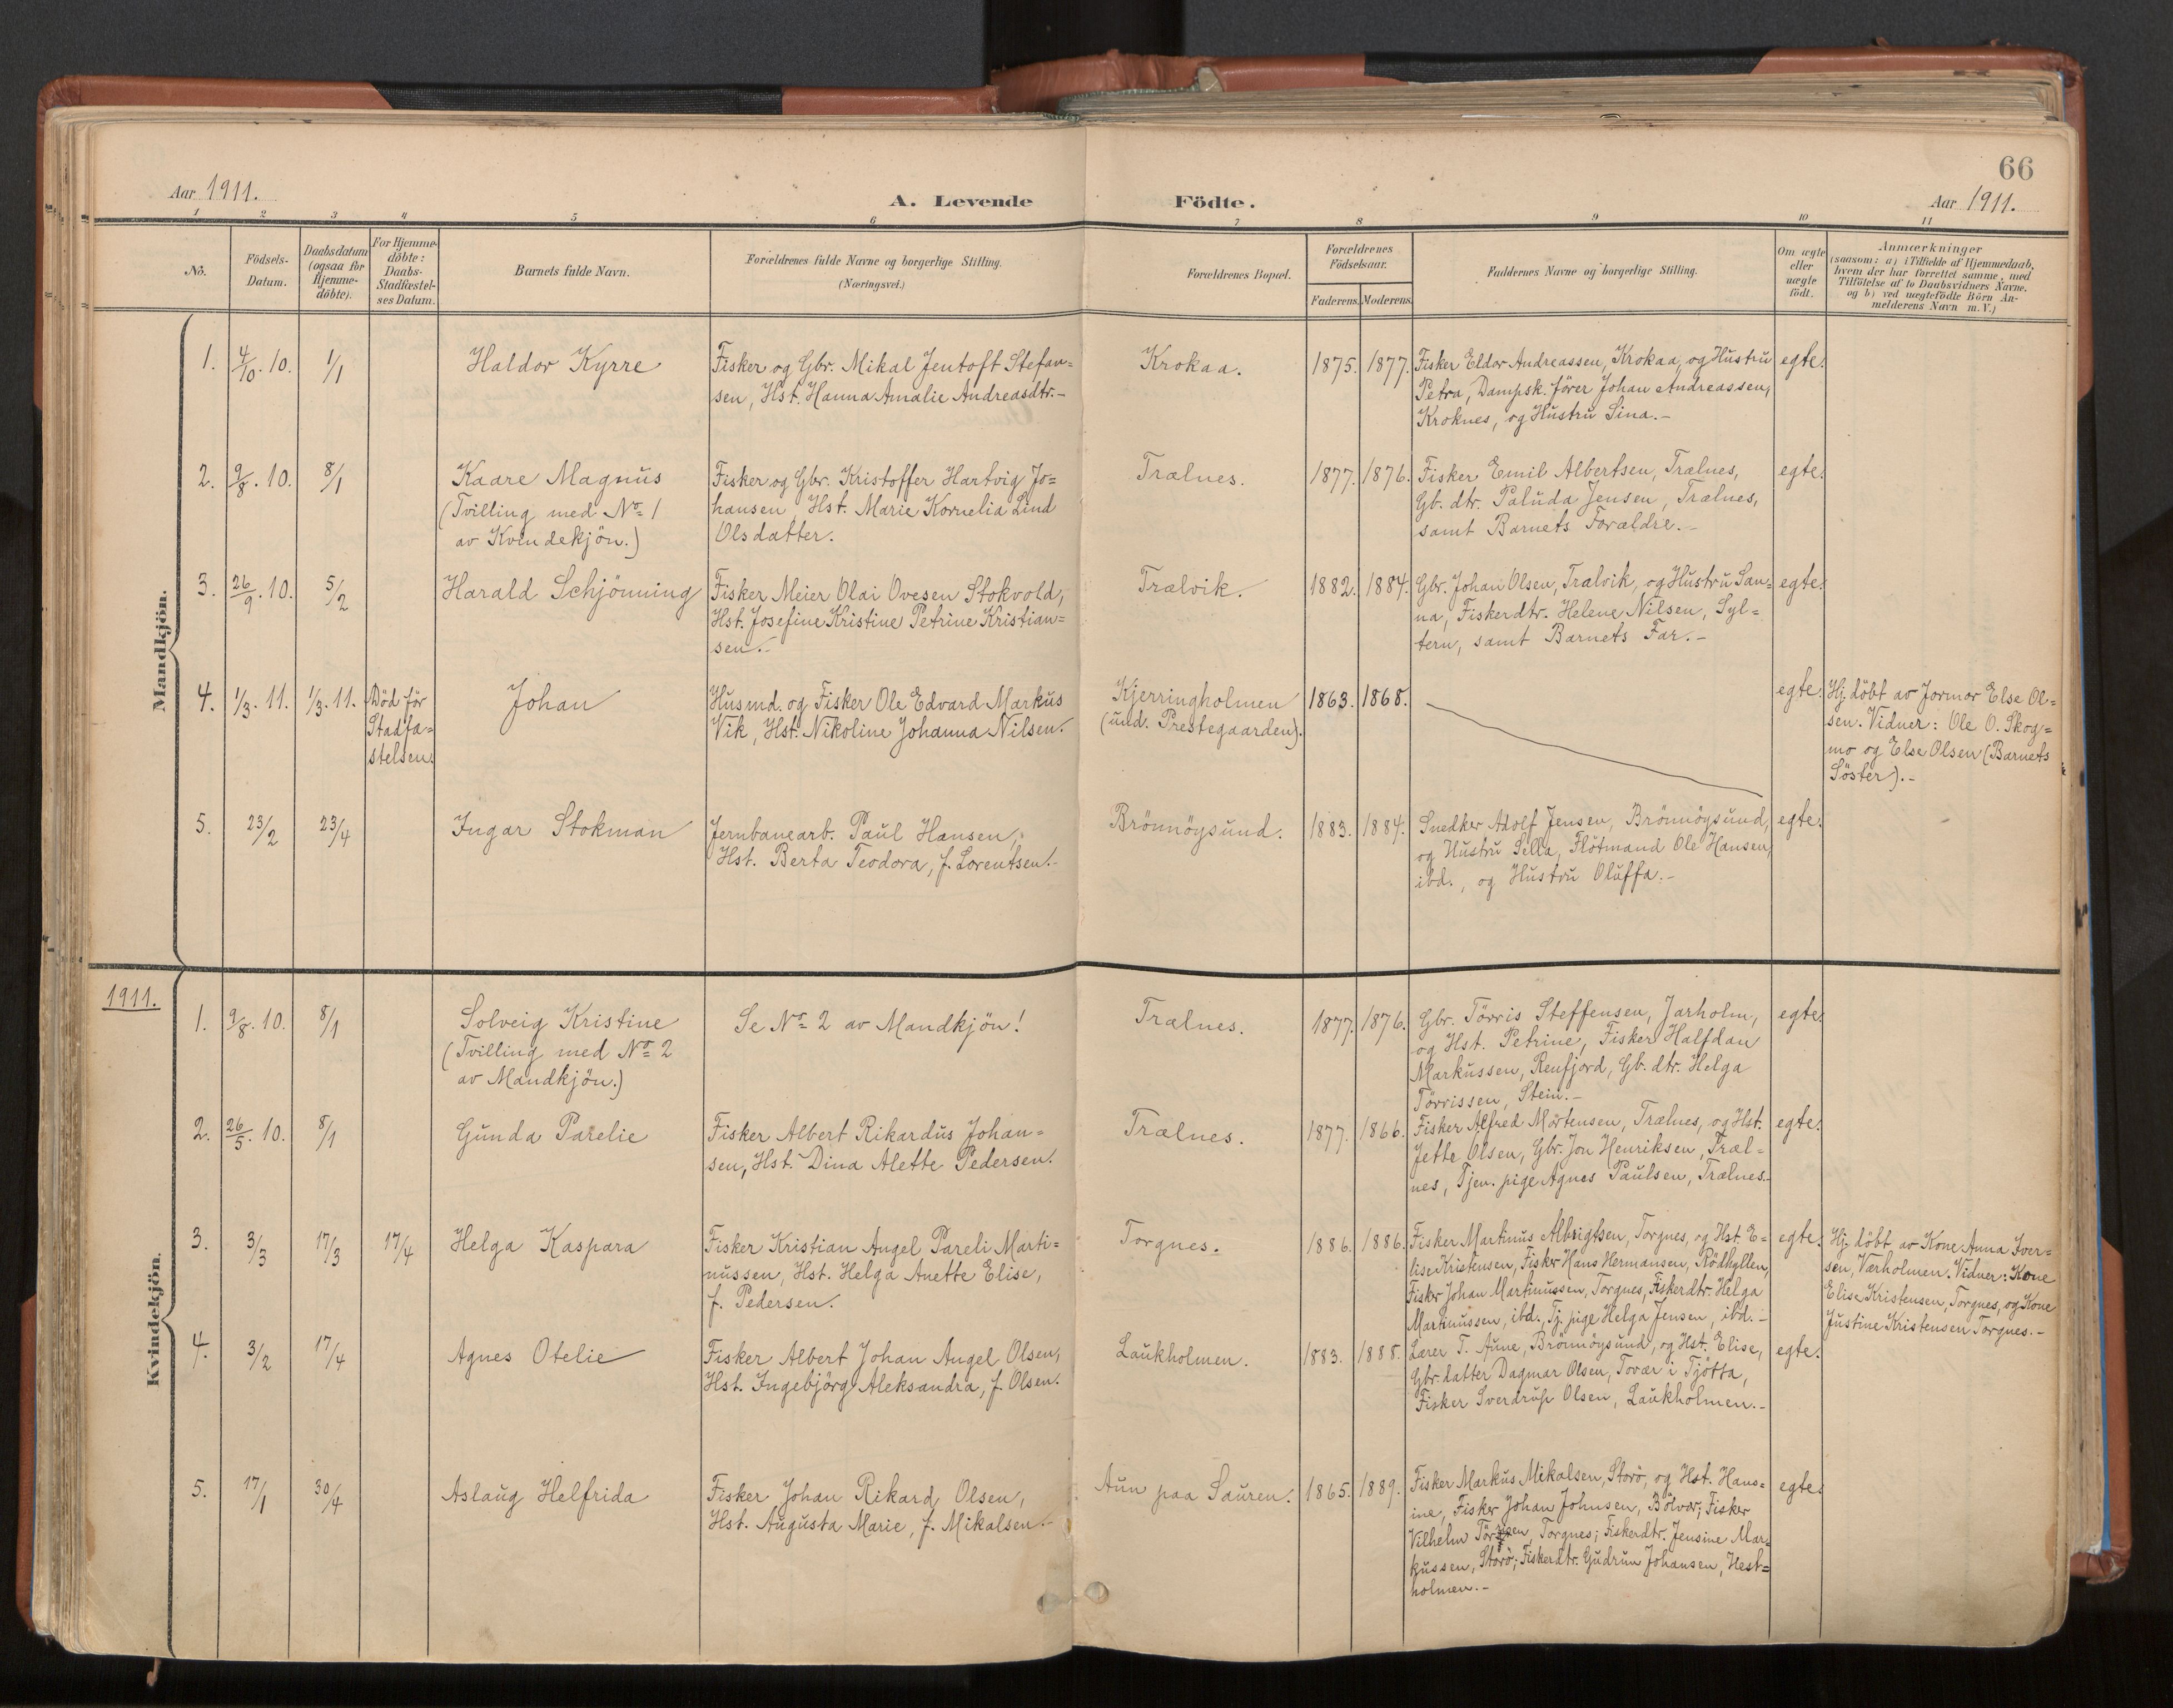 66
Aar 1911.
A. Levende Födte.
Aar 1911.
1 2 3 4 5 6 7 8 9 10 11
No.
Födsels-
Datum.
Daabsdatum
(ogsaa for
Hjemme-
döbte).
For Hjemme-
döbte:
Daabs-
Stadfæstel-
ses Datum.
Barnets fulde Navn.
Forældrenes fulde Navne og borgerlige Stilling.
(Næringsvei.)
Forældrenes Bopæl.
Forældrenes
Födselsaar.
Faderens. Moderens.
Faddernes Navne og borgerlige Stilling.
Om ægte
eller
uægte
födt.
Anmærkninger
(saasom: a) i Tilfælde af Hjemmedaab,
hvem der har forrettet samme, med
Tilföielse af to Daabsvidners Navne,
og b) ved uægtefödte Börn An-
melderens Navn m. V.)
Mandkjön.
1. 4/10. 10. 1/1
Haldor Kyrre
Fisker og Gbr. Mikal Jentoft Stefan=
sen, Hst. Hanna Amalie Andreasdtr.-
Krokaa.
1875. 1877.
Fisker Eldor Andreassen, Krokaa, og Hustru
Petra, Dampsk. förer Johan Andreassen,
Kroknes, og Hustru Sina.-
egte.
2. 9/8. 10. 8/1
Kaare Magnus
(Tvilling med No 1
av Kvindekjön.)
Fisker og Gbr. Kristoffer Hartvig Jo=
hansen, Hst. Marie Kornelia Lind
Olsdatter.
Trælnes.
1877. 1876.
Fisker Emil Albertsen, Trælnes,
Gb. dtr. Paluda Jensen, Trælnes,
samt Barnets Forældre.-
egte.
3. 26/9. 10. 5/2
Harald Schjönning
Fisker Meier Olai Ovesen Stokvold,
Hst. Josefine Kristine Petrine Kristian=
sen.-
Trælvik.
1882. 1884.
Gbr. Johan Olsen, Trælvik, og Hustru San=
na, Fiskerdtr. Helene Nilsen, Syl=
tern, samt Barnets Far.-
egte.
4. 1/3. 11. 1/3. 11.
Död för
Stadfæ=
stelsen.
Johan
Husmd. og Fisker Ole Edvard Markus
Vik, Hst. Nikoline Johanna Nilsen.
Kjerringholmen
(und. Prestegaarden).
1863. 1868.
egte.
Hj. döbt av Jormor Else Ol=
sen. Vidner: Ole O. Skog=
mo og Else Olsen (Barnets
Söster).-
5. 23/2 23/4
Ingar Stokman
Jernbanearb. Paul Hansen,
Hst. Berta Teodora, f. Lorentsen.-
Brönnöysund.
1883. 1884.
Snedker Adolf Jensen, Brönnöysund,
og Hustru Sella, Flötmand Ole Hansen,
ibd., og Hustru Oluffa.-
egte.
1911.
Kvindekjön.
1. 9/8. 10. 8/1
Solveig Kristine
(Tvilling med No 2
av Mandkjön.)
Se No 2 av Mandkjön!
Trælnes.
1877. 1876.
Gbr. Törris Steffensen, Jarholm,
og Hst. Petrine, Fisker Halfdan
Markussen, Renfjord, Gb. dtr. Helga
Törrissen, Stein.-
egte.
2. 26/5. 10. 8/1
Gunda Parelie
Fisker Albert Rikardus Johan=
sen, Hst. Dina Alette Pedersen.
Trælnes.
1877. 1866.
Fisker Alfred Mortensen, Trælnes, og Hst.
Jette Olsen, Gbr. Jon Henriksen, Træl=
nes, Tjen. pige Agnes Paulsen, Trælnes.-
egte.
3. 3/3 17/3 17/4
Helga Kaspara
Fisker Kristian Angel Pareli Marti=
nussen, Hst. Helga Anette Elise,
f. Pedersen.
Torgnes.
1886. 1886.
Fisker Martinus Albrigtsen, Torgnes, og Hst. E=
lise Kristensen, Fisker Hans Hermansen, Rödhyllen,
Fisker Johan Martinussen, Torgnes, Fiskerdtr. Helga
Martinussen, ibd., Tj. pige Helga Jensen, ibd.-
egte.
Hj. döbt av Kone Anna Iver=
sen, Værholmen. Vidner: Kone
Elise Kristensen, Torgnes, og Kone
Justine Kristensen Torgnes.-
4. 3/2 17/4
Agnes Otelie
Fisker Albert Johan Angel Olsen,
Hst. Ingebjörg Aleksandra, f. Olsen.
Laukholmen.
1883. 1888.
Lærer T. Aune, Brönnöysund, og Hst. Elise,
Gbr. datter Dagmar Olsen, Tovær i Tjötta,
Fisker Sverdrup Olsen, Laukholmen.-
egte.
5. 17/1 30/4
Aslaug Helfrida
Fisker Johan Rikard Olsen,
Hst. Augusta Marie, f. Mikalsen.-
Aun paa Sauren.
1865. 1889.
Fisker Markus Mikalsen, Storö, og Hst. Hans=
ine, Fisker Johan Johnsen, Bölvær; Fisker
Vilhelm Torgnes; Fiskerdtr. Jensine Mar=
kussen, Storö; Fiskerdtr. Gudrun Johansen, Hest=
holmen.-
egte.